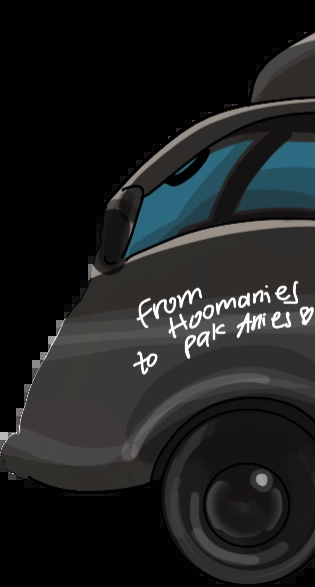 From
Hoomanies
to pak Anies ♡